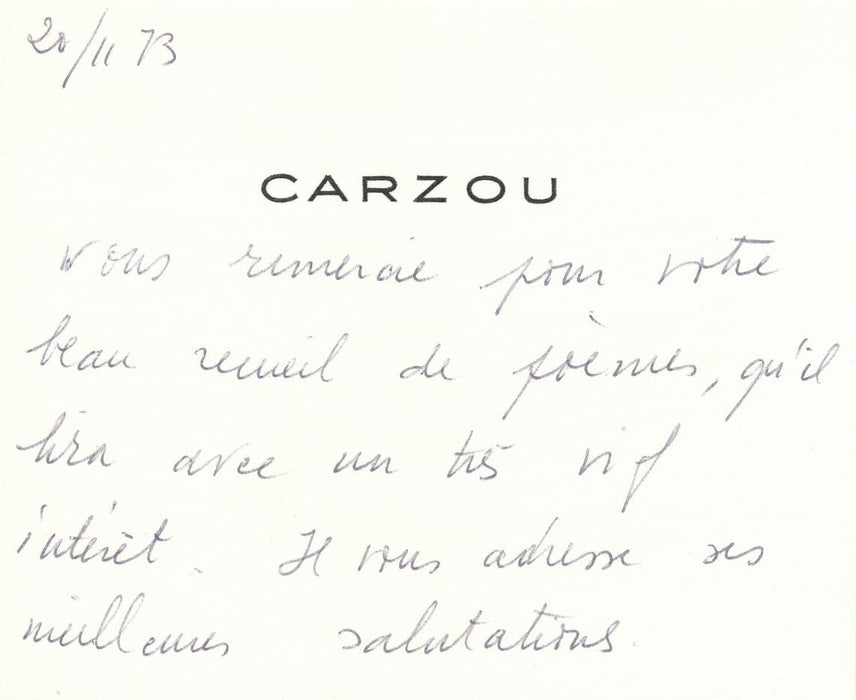 20/11 73
CARZOU
vous remercie pour votre
beau recueil de poèmes, qu'il
lira avec un très vif
intérêt. Il vous adresse ses
meilleures salutations.